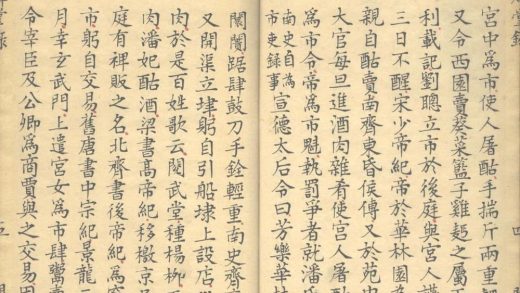 宮中爲市使人屠酤手揣斤兩重
又令西園賣葵菜籃子雞麪之屬
利載記劉聰立市於後庭與宮人讌
三日不醒宋少帝紀於華林園爲
親自酤賣南齊東昏侯傳又於苑中
大官每旦進酒肉雜肴使宮人屠
爲市令帝爲市魁執罰爭者就潘氏
南史自爲市吏錄事宣德太后令曰芳樂華林
闤闠踞肆鼓刀手銓輕重南史齊
又開渠立埭躬自引船埭上設店
肉於是百姓歌云閱武堂種楊柳
肉潘妃酤酒梁書高帝紀移檄京
庭有裨販之名北齊書後帝紀爲窮
市躬自交易舊唐書中宗紀景龍
月幸玄武門上遣宮女爲市肆鬻
令宰臣及公卿爲商賈與之交易因